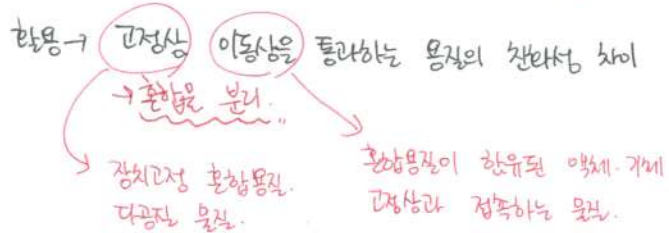 활용→ 고정상 이동상을 통과하는 용질의 친화성 차이
→ 혼합물 분리.
장치고정 혼합용질.
다공질 물질.
혼합용질이 함유된 액체·기체
고정상과 접촉하는 물질.